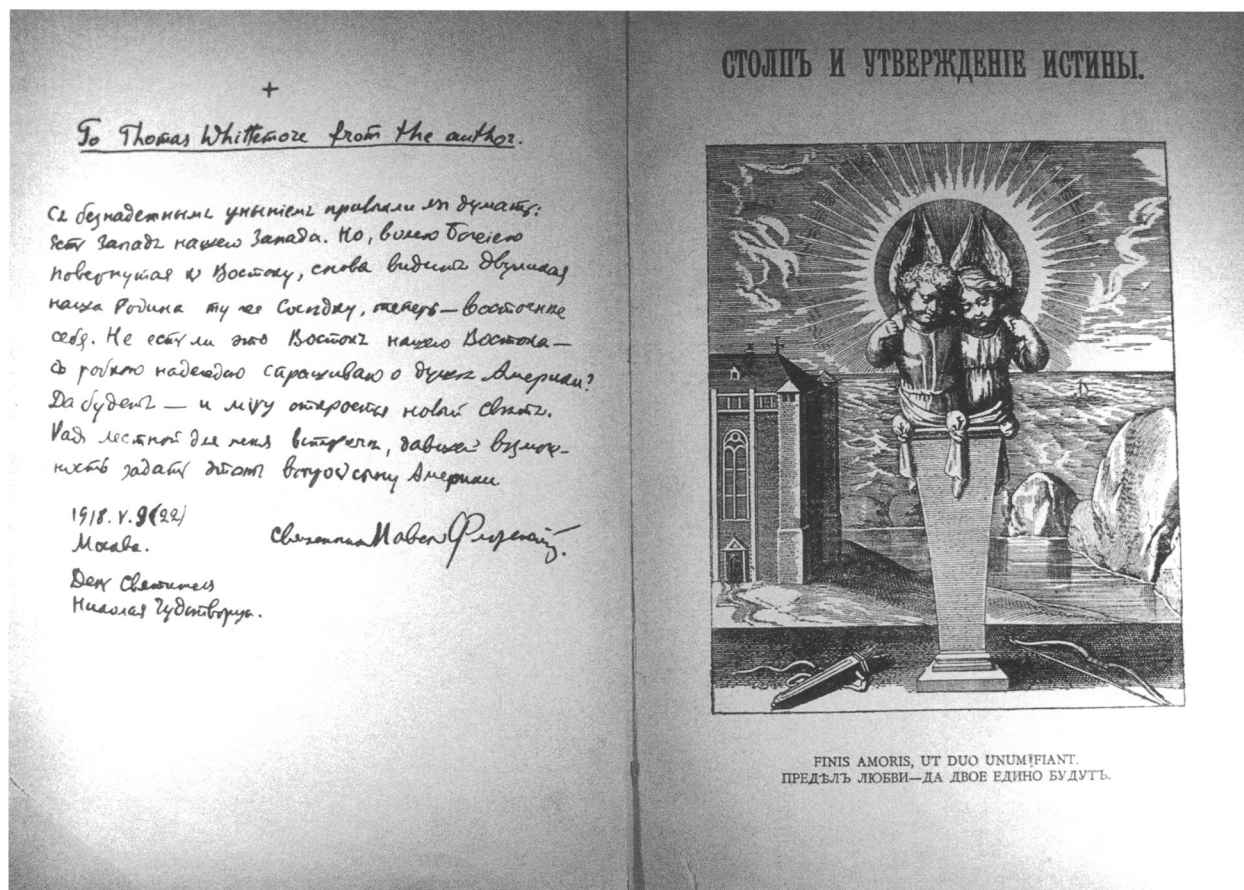 +
To Thomas Whittemore from the author.
Съ безнадежнымъ уныніемъ привыкли мы думать:
есть Западъ нашего Запада. Но, волею Божіею
повернутая къ Востоку, снова видитъ двуликая
наша Родина ту же Сосѣдку, теперь — восточнѣе
себя. Не есть ли это Востокъ нашего Востока —
съ робкою надеждою спрашиваю о душѣ Америки?
Да будетъ — и міру откроется новый свѣтъ.
Радъ лестной для меня встрѣчѣ, давшей возмож-
ность задать этотъ вопросъ сыну Америки
1918. V. 9 (22)
Москва.
Священникъ Павелъ Флоренскій.
День Святителя
Николая Чудотворца.
СТОЛПЪ И УТВЕРЖДЕНІЕ ИСТИНЫ.
FINIS AMORIS, UT DUO UNUM FIANT.
ПРЕДѢЛЪ ЛЮБВИ—ДА ДВОЕ ЕДИНО БУДУТЪ.